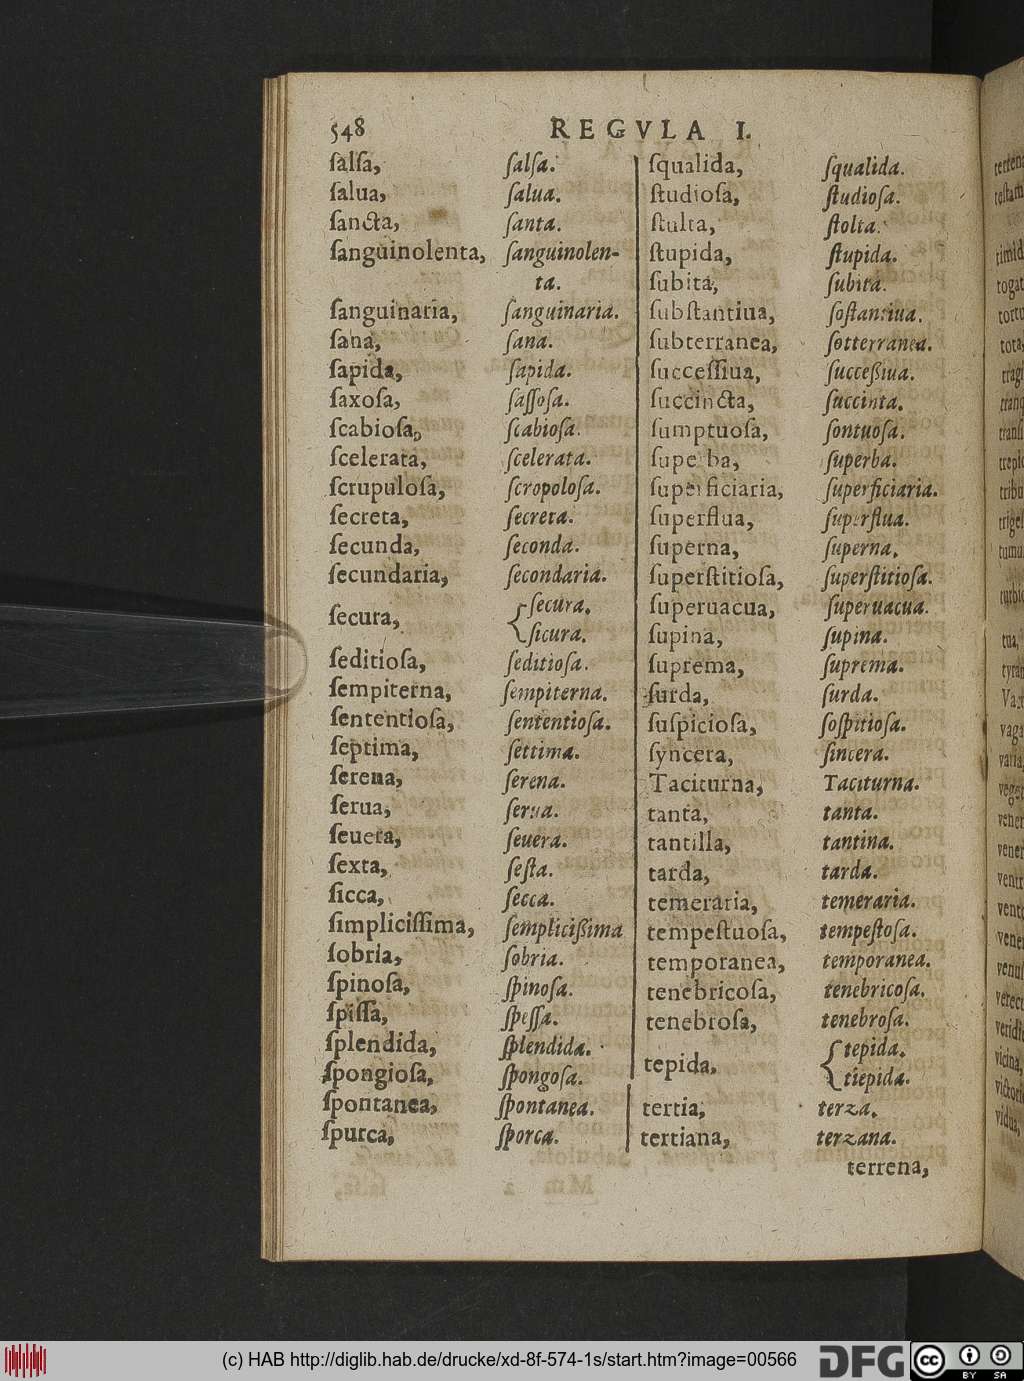 548 REGVLA I.
ſalſa, ſalſa.
ſalua, ſalua.
ſancta, ſanta.
ſanguinolenta, ſanguinolen-
ta.
ſanguinaria, ſanguinaria.
ſana, ſana.
ſapida, ſapida.
ſaxoſa, ſaſſoſa.
ſcabioſa, ſcabioſa.
ſcelerata, ſcelerata.
ſcrupuloſa, ſcropoloſa.
ſecreta, ſecreta.
ſecunda, ſeconda.
ſecundaria, ſecondaria.
ſecura, ſecura.
ſicura.
ſeditioſa, ſeditioſa.
ſempiterna, ſempiterna.
ſententioſa, ſententioſa.
ſeptima, ſettima.
ſerena, ſerena.
ſerua, ſerua.
ſeuera, ſeuera.
ſexta, ſeſta.
ſicca, ſecca.
ſimpliciſſima, ſemplicißima
ſobria, ſobria.
ſpinoſa, ſpinoſa.
ſpiſſa, ſpeſſa.
ſplendida, ſplendida.
ſpongioſa, ſpongoſa.
ſpontanea, ſpontanea.
ſpurca, ſporca.
ſqualida, ſqualida.
ſtudioſa, ſtudioſa.
ſtulta, ſtolta.
ſtupida, ſtupida.
ſubita, ſubita.
ſubſtantiua, ſoſtantiua.
ſubterranea, ſotterranea.
ſucceſſiua, ſucceßiua.
ſuccincta, ſuccinta.
ſumptuoſa, ſontuoſa.
ſuperba, ſuperba.
ſuperficiaria, ſuperficiaria.
ſuperflua, ſuperflua.
ſuperna, ſuperna.
ſuperſtitioſa, ſuperſtitioſa.
ſuperuacua, ſuperuacua.
ſupina, ſupina.
ſuprema, ſuprema.
ſurda, ſurda.
ſuſpicioſa, ſoſpitioſa.
ſyncera, ſincera.
Taciturna, Taciturna.
tanta, tanta.
tantilla, tantina.
tarda, tarda.
temeraria, temeraria.
tempeſtuoſa, tempeſtoſa.
temporanea, temporanea.
tenebricoſa, tenebricoſa.
tenebroſa, tenebroſa.
tepida, tepida.
tiepida.
tertia, terza.
tertiana, terzana.
terrena,
(c) HAB http://diglib.hab.de/drucke/xd-8f-574-1s/start.htm?image=00566
DFG
cc BY SA